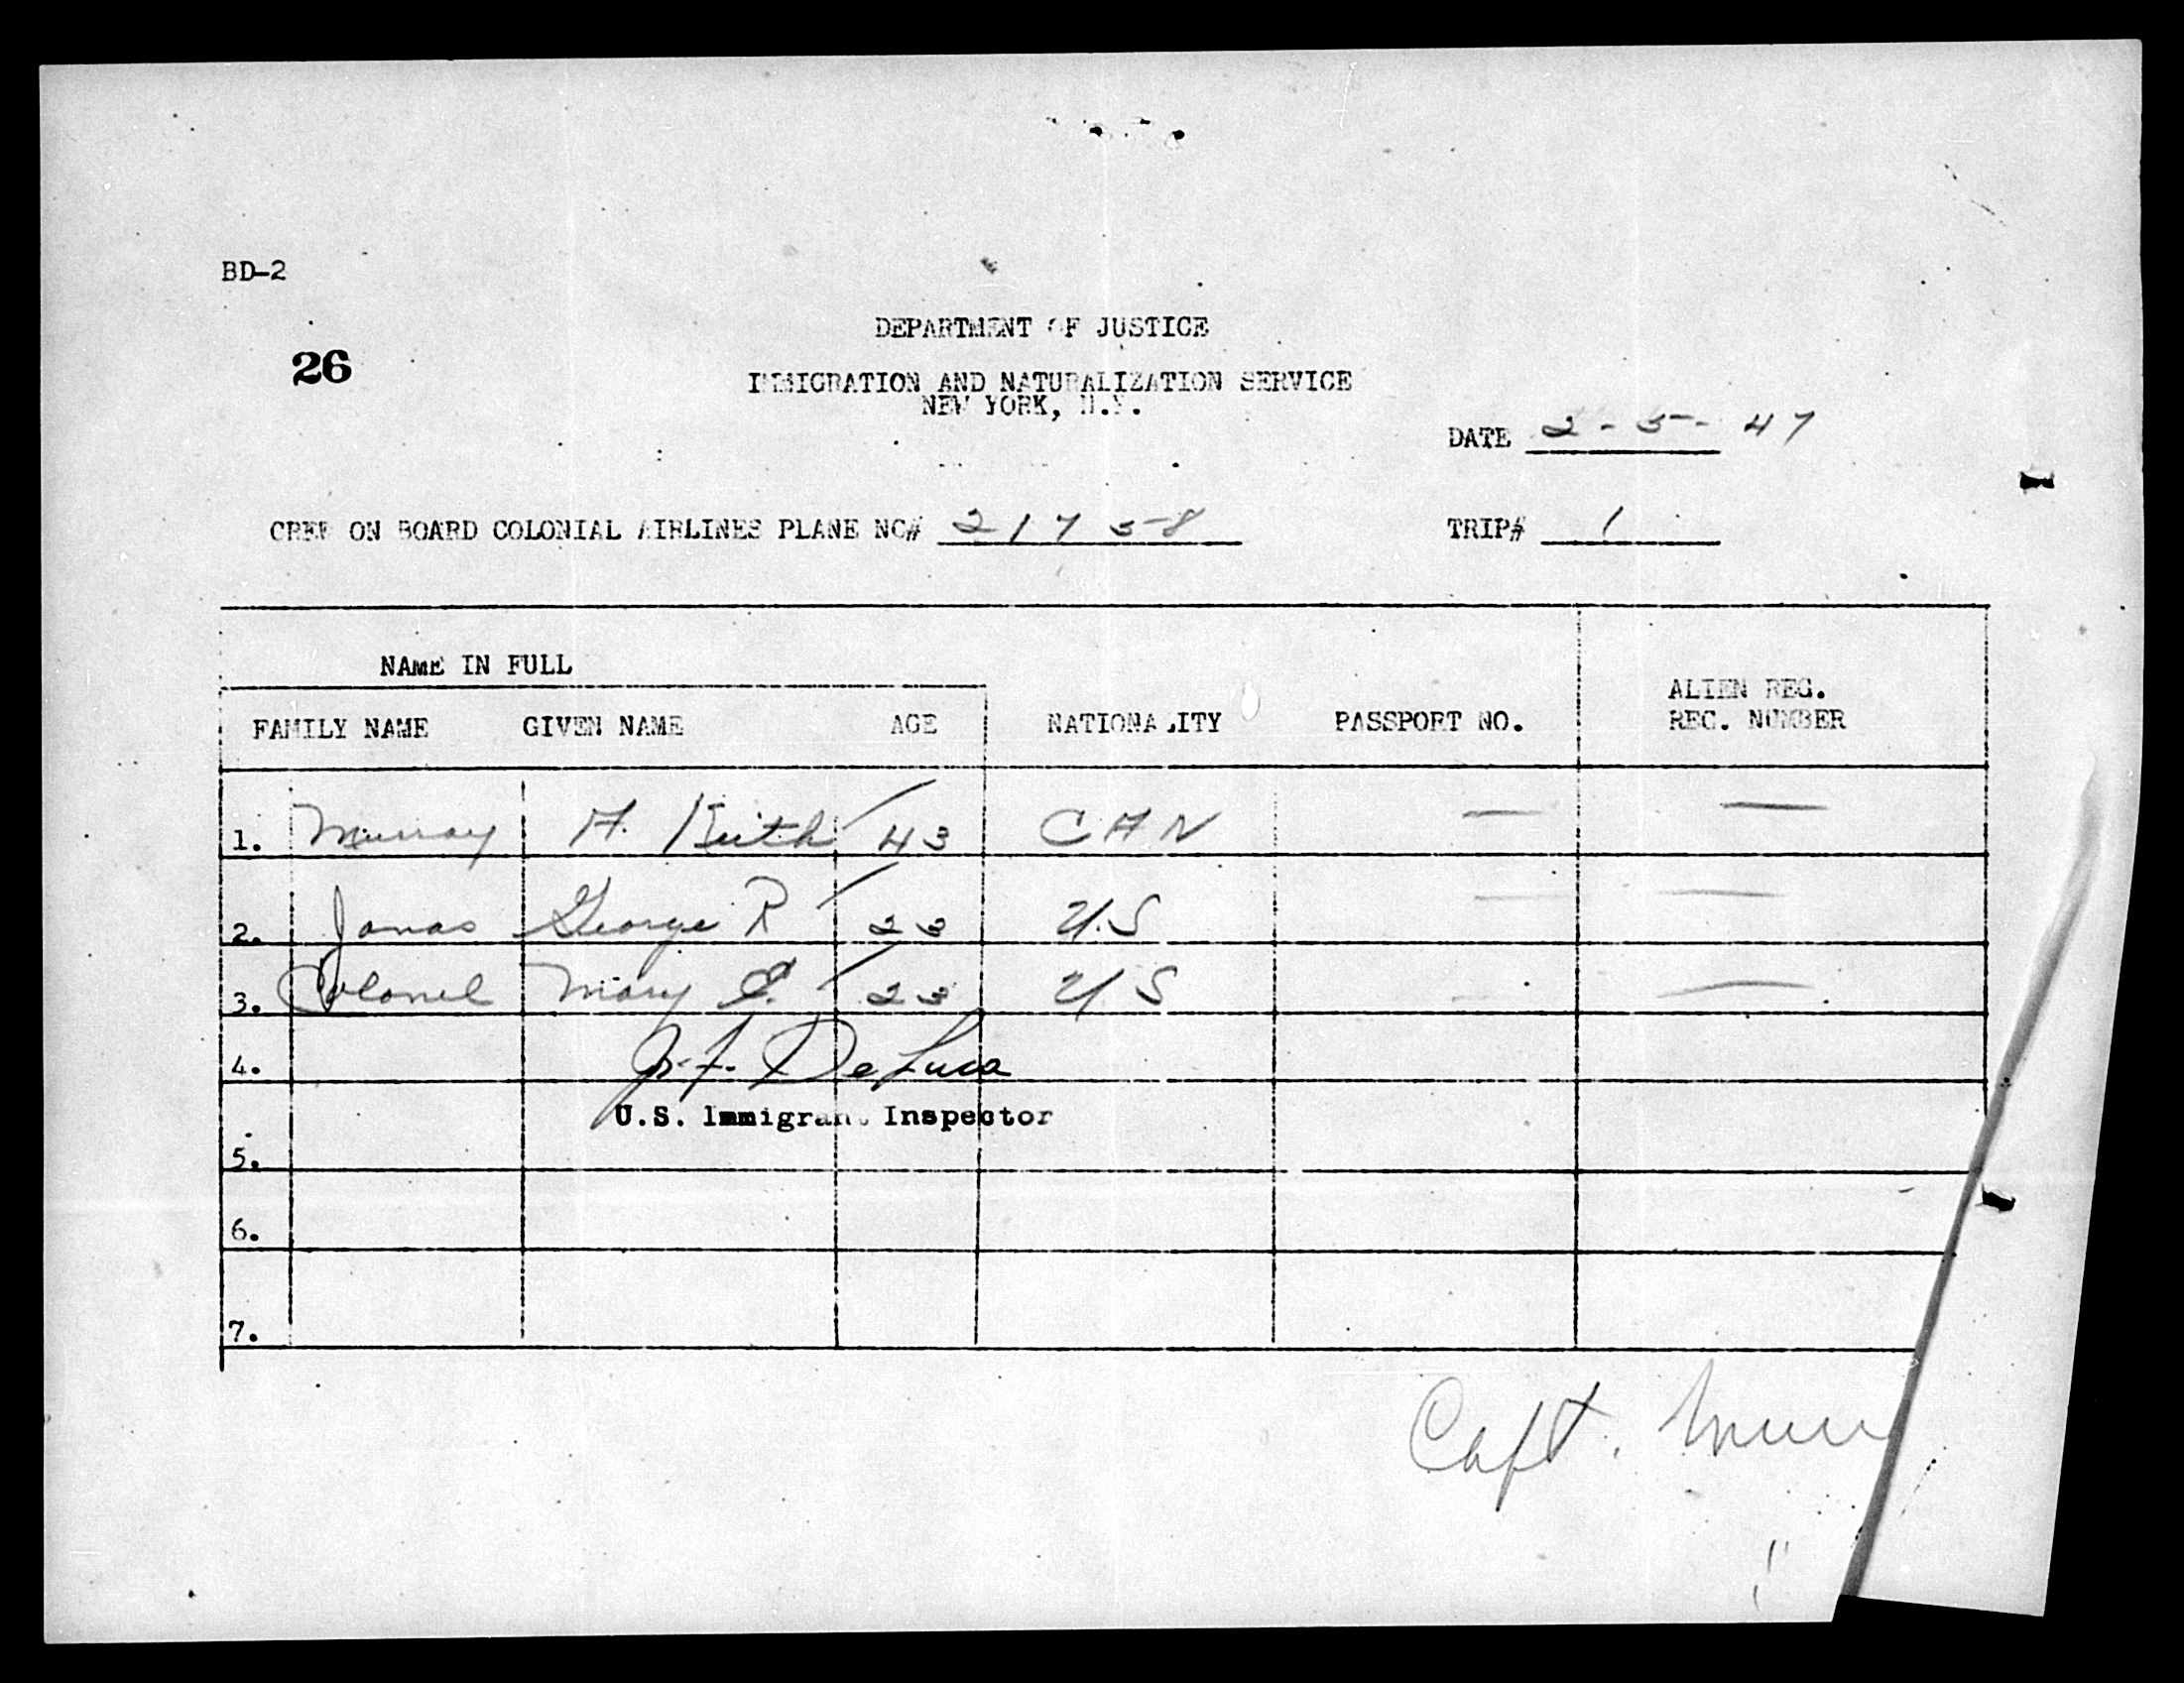 BD-2
26
DEPARTMENT OF JUSTICE
IMMIGRATION AND NATURALIZATION SERVICE
NEW YORK, N.Y.
DATE 2-5-47
CREW ON BOARD COLONIAL AIRLINES PLANE NO# 21758 TRIP# 1
NAME IN FULL
FAMILY NAME GIVEN NAME AGE NATIONALITY PASSPORT NO. ALIEN REG. REC. NUMBER
1. Murray A. Keith 43 CAN — —
2. Jonas George R 23 U.S — —
3. Colonel Mary E. 23 U.S — —
4. J.F. DeLuca
U.S. Immigrant Inspector
5.
6.
7.
Capt. Murr